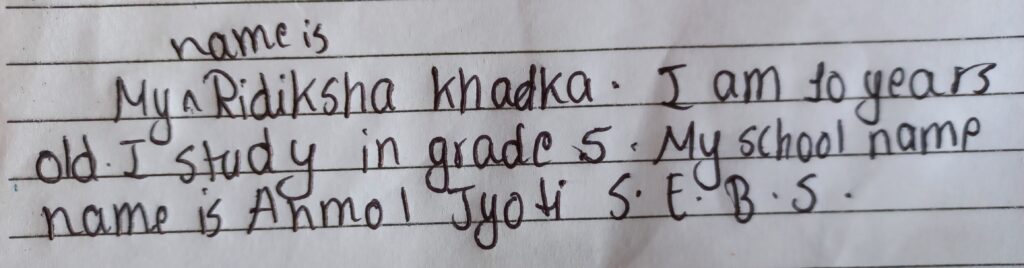 name is
My ^ Ridiksha khadka. I am 10 years
old. I study in grade 5. My school name
name is Anmol Jyoti S.E.B.S.